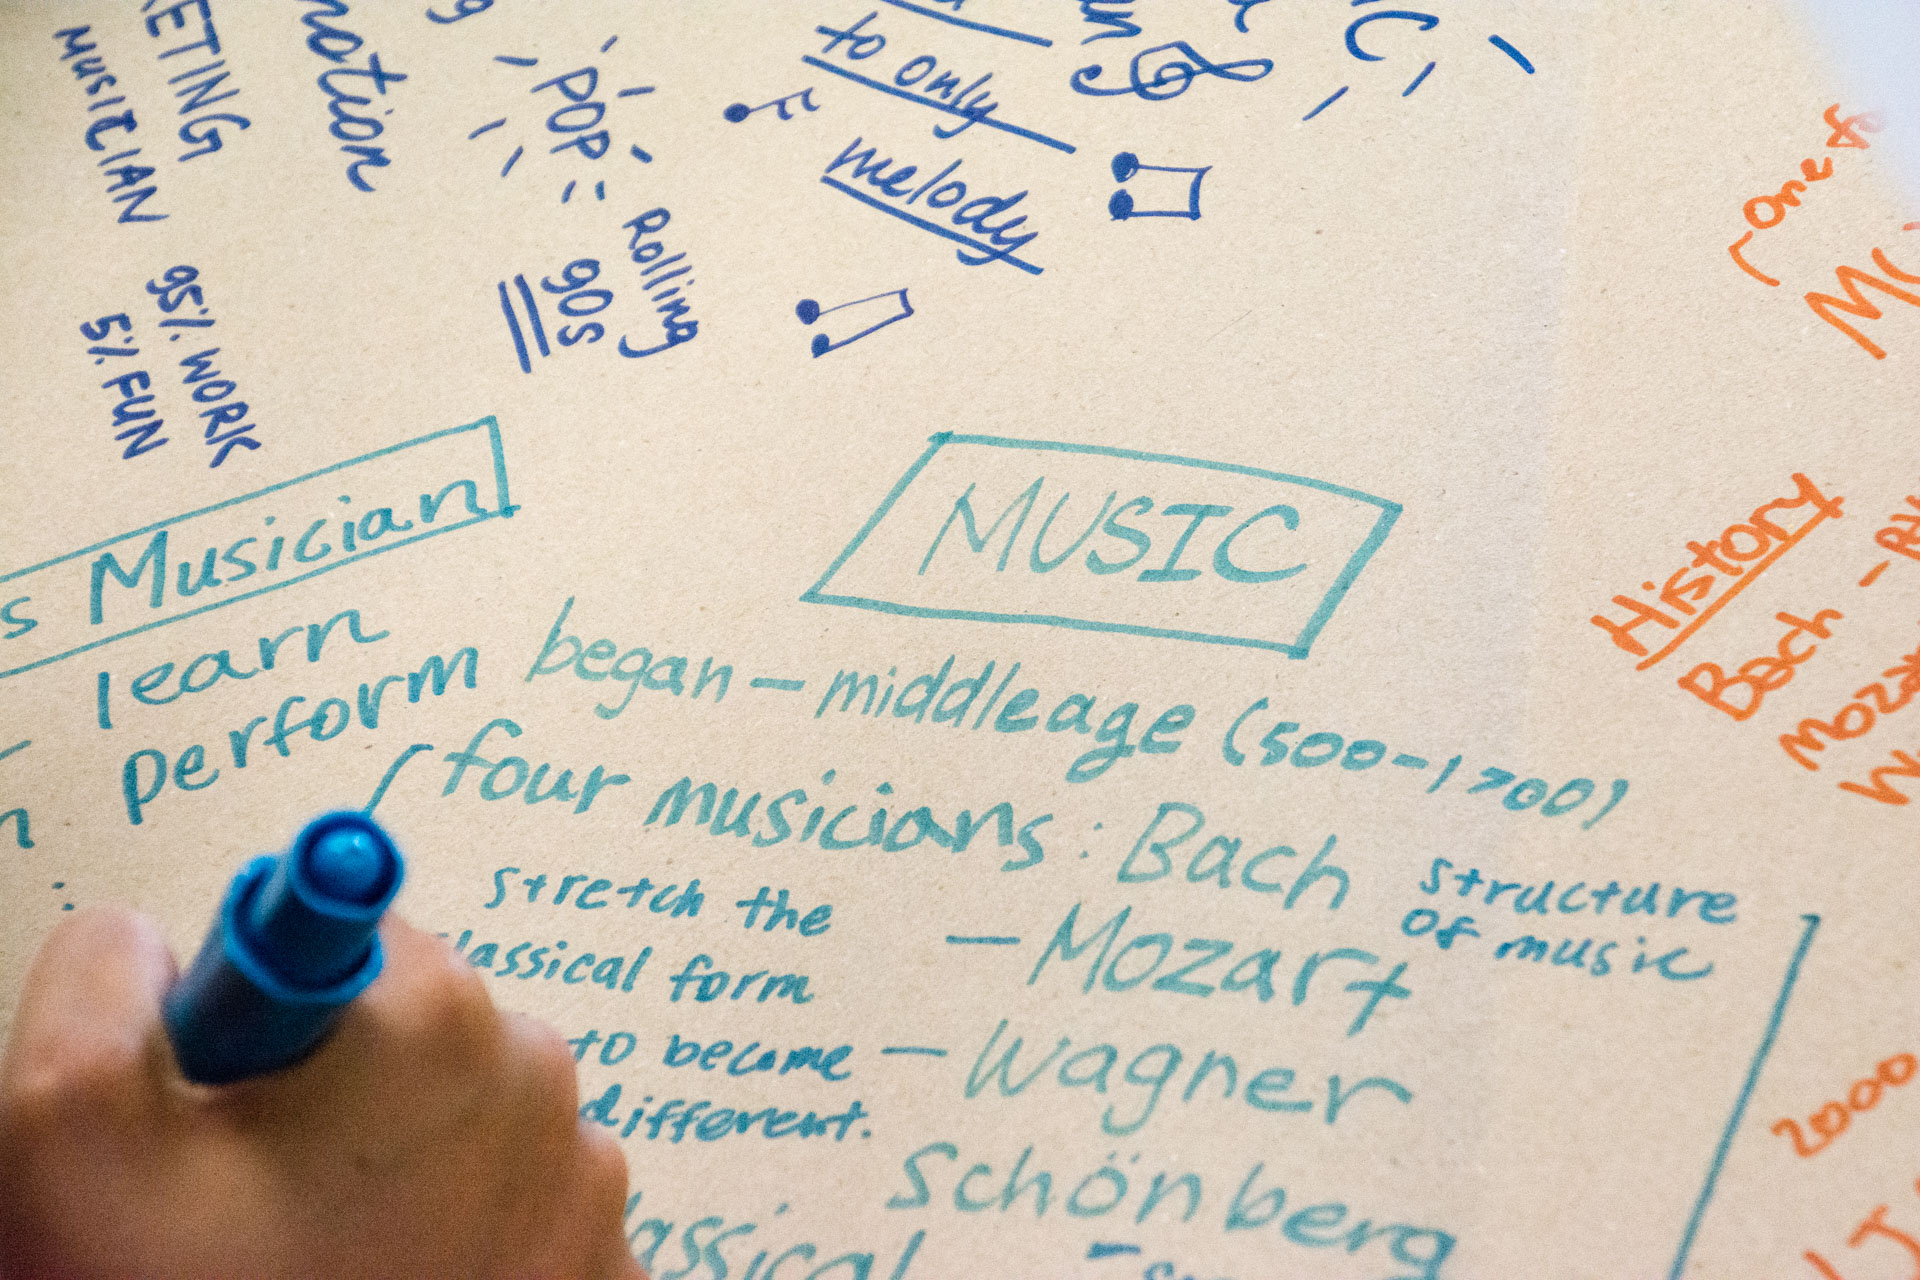 MUSICIAN
95% WORK
5% FUN
POP
Rolling
90s
to only
melody
Musician
learn
perform
MUSIC
began – middleage (500-1700)
four musicians: Bach
structure
of music
stretch the
classical form
to become
different.
– Mozart
– Wagner
Schönberg
classical
one
History
Bach
2000